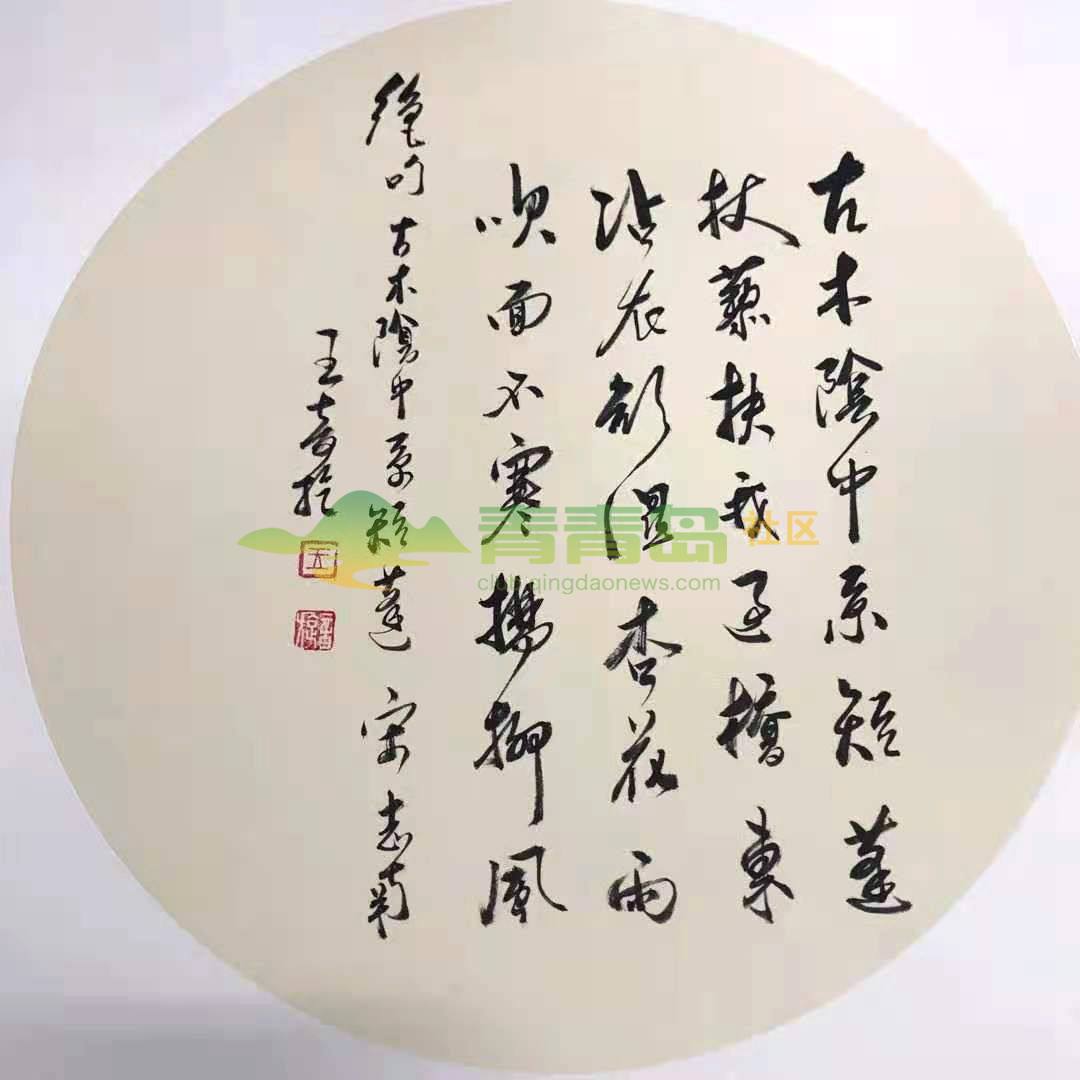 古木陰中系短蓬
杖藜扶我過橋東
沾衣欲湿杏花雨
吹面不寒楊柳風
絕句 古木陰中系短蓬 宋 志南
王
王
青青岛社区
club.qingdaonews.com